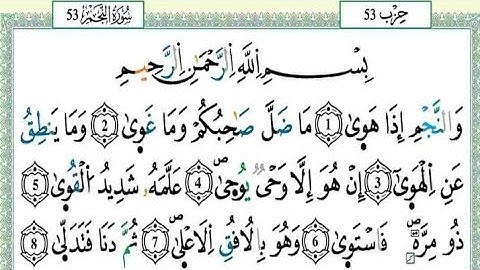 53 سُورَةُ النَّجْمِ
حِزْب 53
بِسْمِ اِللَّهِ اِلرَّحْمَٰنِ اِلرَّحِيمِ
وَالنَّجْمِ إِذَا هَوَىٰ 1 مَا ضَلَّ صَٰحِبُكُمْ وَمَا غَوَىٰ 2 وَمَا يَنطِقُ
عَنِ اِلْهَوَىٰٓ 3 إِنْ هُوَ إِلَّا وَحْىٌ يُوحَىٰ 4 عَلَّمَهُۥ شَدِيدُ اُلْقُوَىٰ 5
ذُو مِرَّةٍۖ فَاسْتَوَىٰ 6 وَهُوَ بِالُافُقِ اِلَاعْلَىٰ 7 ثُمَّ دَنَا فَتَدَلَّىٰ 8